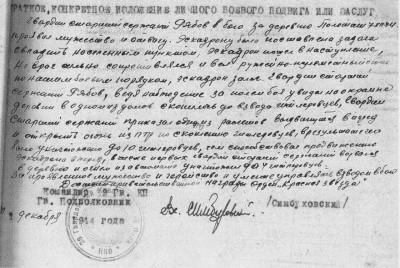 КРАТКОЕ, КОНКРЕТНОЕ ИЗЛОЖЕНИЕ ЛИЧНОГО БОЕВОГО ПОДВИГА ИЛИ ЗАСЛУГ
Гвардии старший сержант Рябов в бою за деревню
проявил мужество и отвагу. Эскадрону была поставлена задача
овладеть населенным пунктом. Эскадрон пошел в наступление,
но враг сильно сопротивлялся и вел ружейно-пулеметный
по нашим боевым порядкам, эскадрон залег. Гвардии старший
сержант Рябов, ведя наблюдение за полем боя увидел на окраине
деревни в одном из домов скопилось до взвода гитлеровцев, Гвардии
старший сержант приказал
и открыть огонь из ПТР по скоплению гитлеровцев, в результате чего
было уничтожено до 10 гитлеровцев, чем способствовал продвижению
эскадрона вперед, в числе первых гвардии старший сержант ворвался
в деревню и огнем из автомата уничтожил до 7 гитлеровцев.
За проявленное мужество и геройство и умелое управление взводом в бою
Достоин правительственной награды орден "Красная Звезда"
Командир Гв. КП
Гв. Подполковник /Симбуховский/
декабря 1944 года